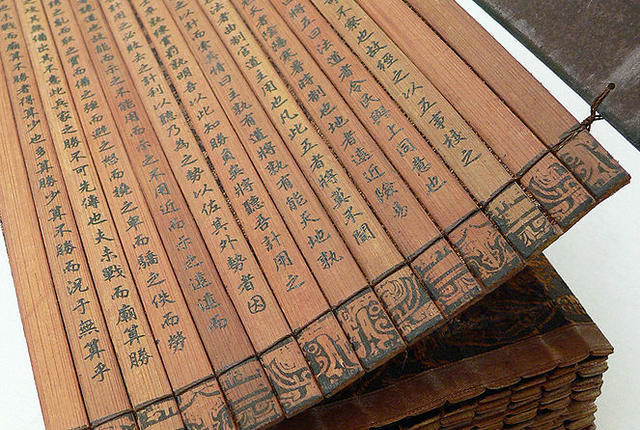 不察也故經之以五事校之
將五曰法道者令民與上同意也
天者陰陽寒暑時制也地者遠近險易
法者曲制官道主用也凡此五者將莫不聞
之以計而索其情曰主孰有道將孰有能天地孰
孰練賞罰孰明吾以此知勝負矣將聽吾計用之
計用之必敗去之計利以聽乃為之勢以佐其外勢者因
也故能而示之不能用而示之不用近而示之遠遠而
亂而取之實而備之強而避之怒而撓之卑而驕之佚而勞
攻其無備出其不意此兵家之勝不可先傳也夫未戰而廟算勝
未戰而廟算不勝者得算少也多算勝少算不勝而況于無算乎